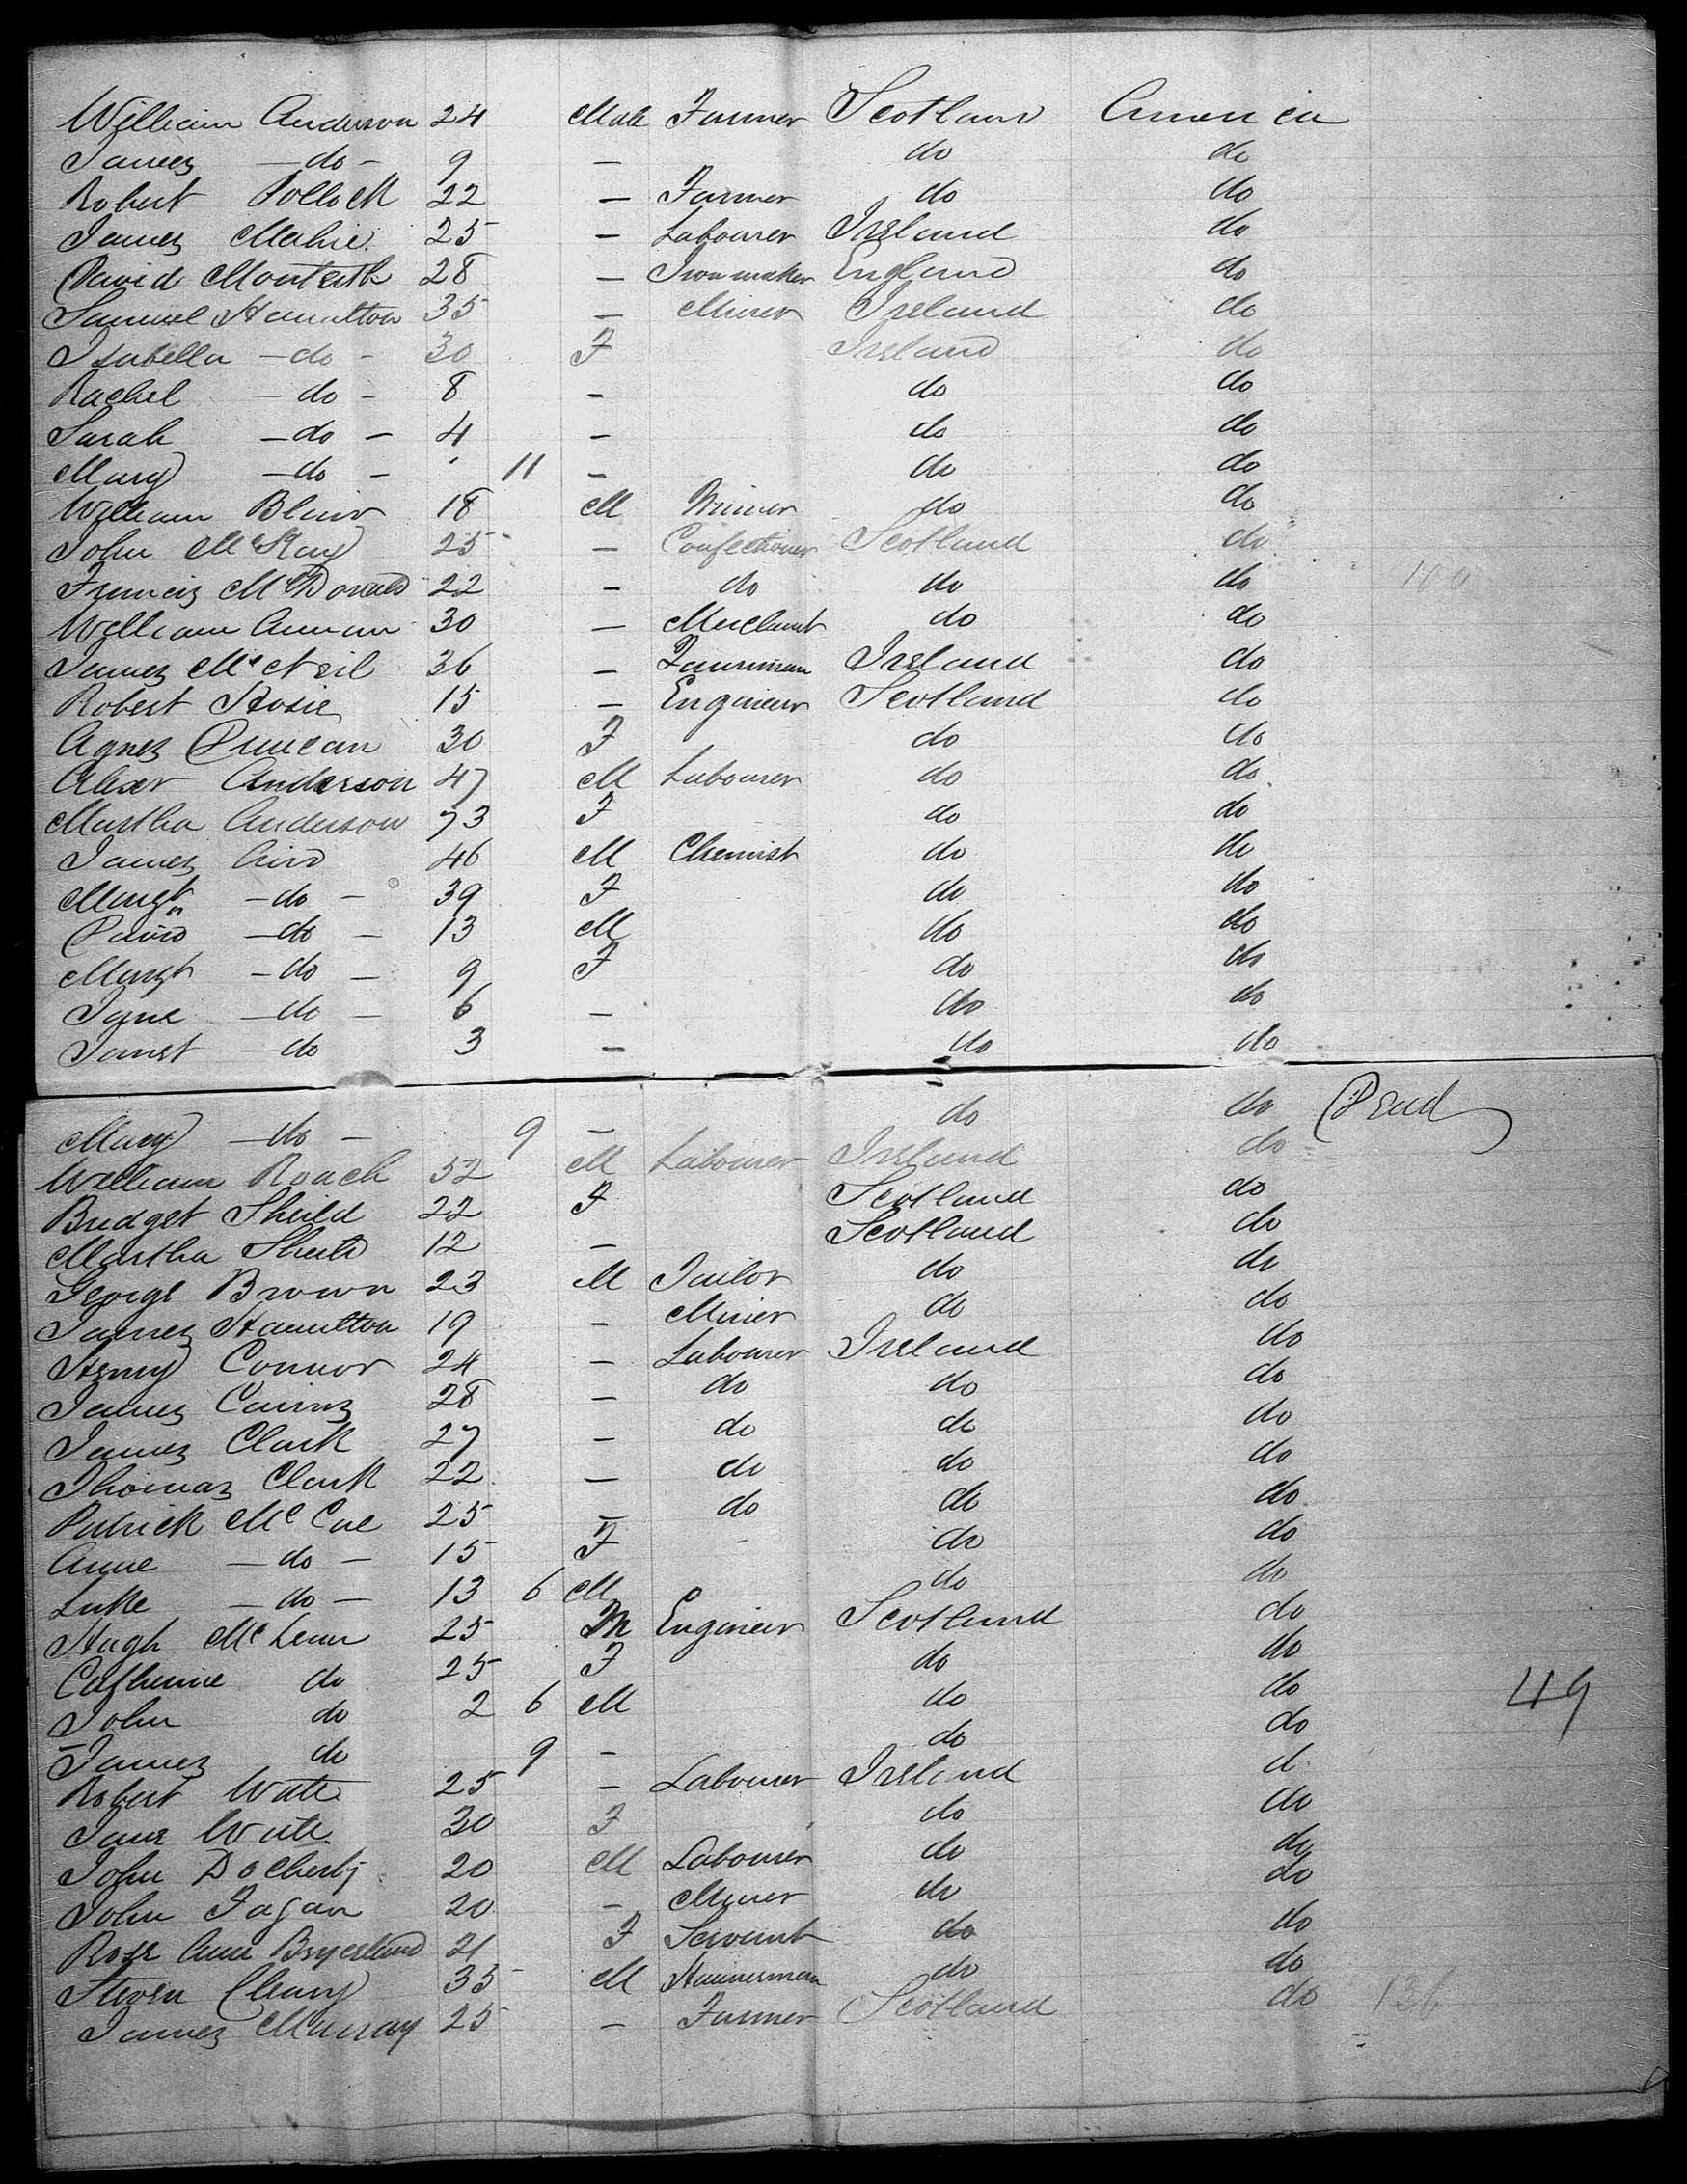 William Anderson 24 Male Farmer Scotland America
James — do — 9 — do do
Robert Pollock 22 — Farmer do do
James 25 — Labourer Ireland do
David Monteith 28 — Iron maker England do
Samuel Hamilton 35 — Miner Ireland do
Isabella — do — 30 F Ireland do
Rachel — do — 8 — do do
Sarah — do — 4 — do do
Mary — do — 11 — do do
William Blair 18 M Miner do do
John McKay 25 — Confectioner Scotland do
Francis McDonald 22 — do do do 100
William Annan 30 — Merchant do do
James McNeil 36 — Ireland do
Robert Hosie 15 — Engineer Scotland do
Agnes Duncan 30 F do do
Alexr Anderson 47 M Labourer do do
Martha Anderson 73 F do do
James Aird 46 M Chemist do do
Margt — do — 39 F do do
David — do — 13 M do do
Margt — do — 9 F do do
Jane — do — 6 — do do
Janet — do 3 — do do
Mary — do — 9 — do do Dead
William Roach 52 M Labourer Ireland do
Bridget Sheild 22 F Scotland do
Martha 12 — Scotland do
George Brown 23 M Tailor do do
James Hamilton 19 — Miner do do
Henry Connor 24 — Labourer Ireland do
James Cairns 28 — do do do
James Clark 27 — do do do
Thomas Clark 22 — do do do
Patrick McCue 25 — do do do
Anne — do — 15 F - do do
Luke — do — 13 6 M do do
Hugh McLean 25 M Engineer Scotland do
Catherine do 25 F do do
John do 2 6 M do do 49
James do 9 — do do
Robert 25 — Labourer Ireland do
Jane 30 F do do
John Docherty 20 M Labourer do do
John Fagan 20 — Miner do do
Rose Ann 21 F Servant do do
Steven Cleary 35 M Hammerman do do
James Murray 25 — Farmer Scotland do 136